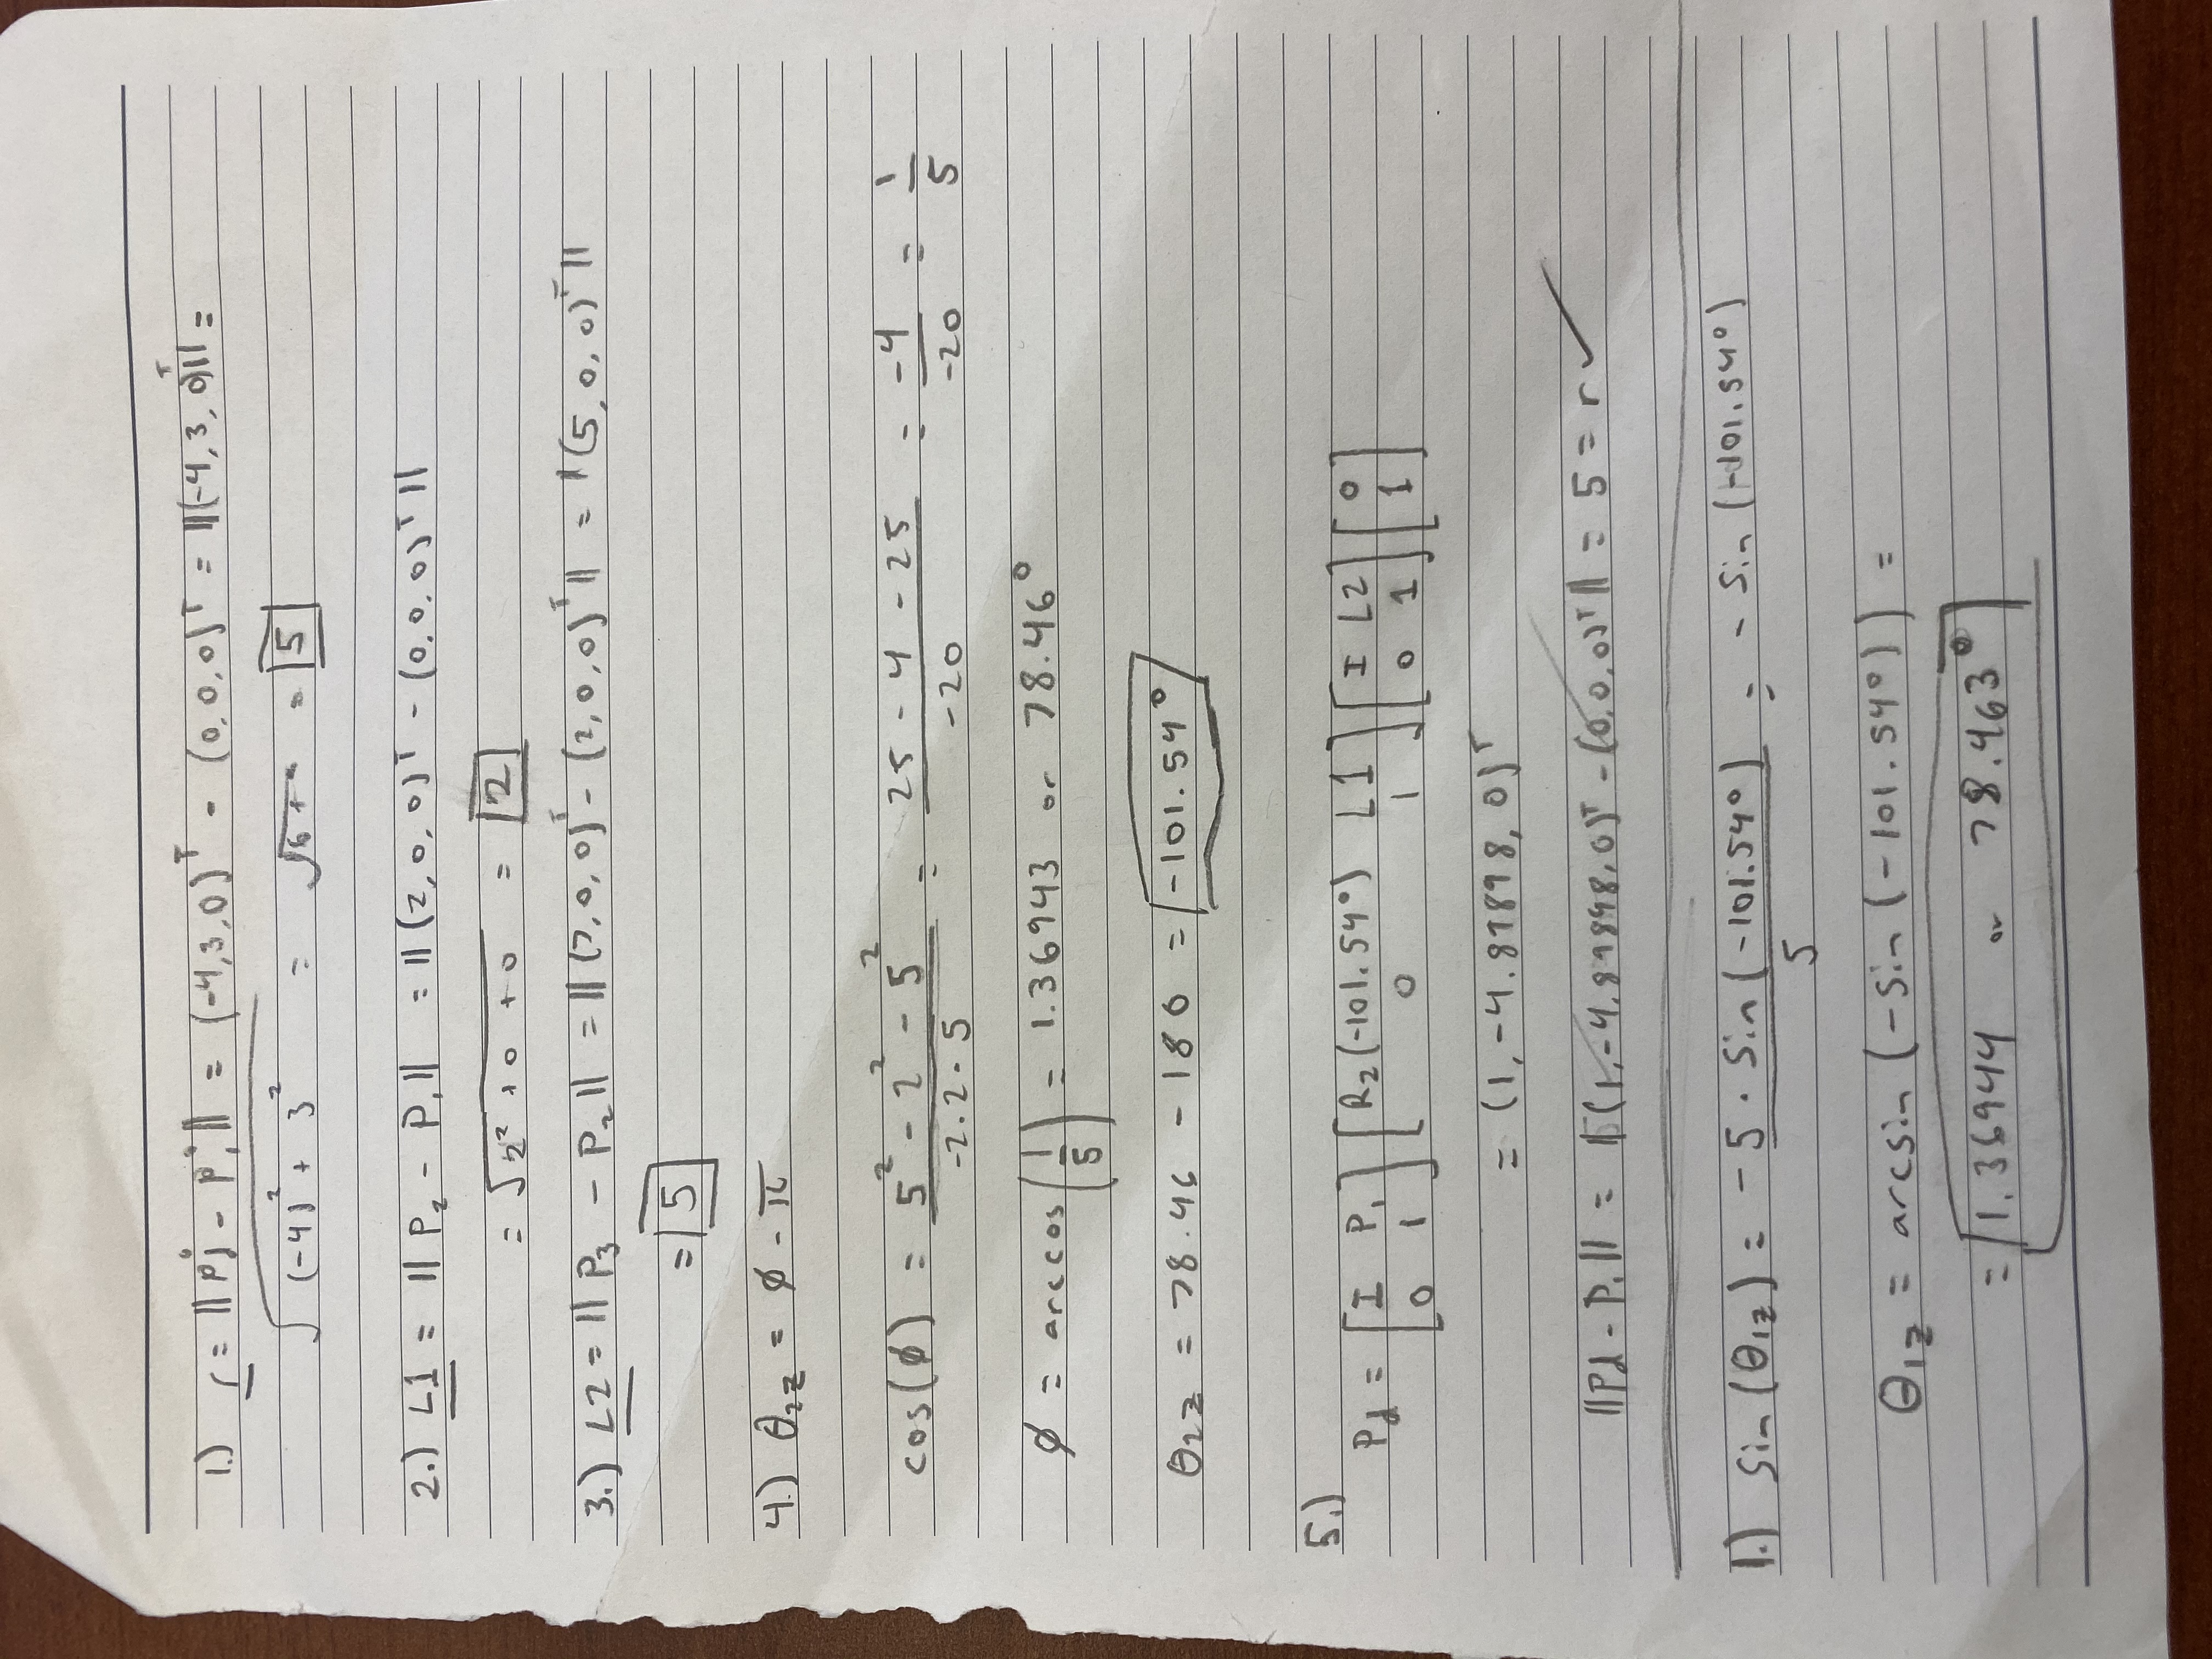 1.) r = ||Pd - P1|| = (-4,3,0)ᵀ - (0,0,0)ᵀ = ||(-4,3,0)ᵀ|| =
√((-4)² + 3²) = = 5
2.) L1 = ||P₂ - P₁|| = ||(2,0,0)ᵀ - (0,0,0)ᵀ||
= √(2² + 0 + 0) = 2
3.) L2 = ||P₃ - P₂|| = ||(7,0,0)ᵀ - (2,0,0)ᵀ|| = ||(5,0,0)ᵀ||
= 5
4.) θ₂z = ϕ - π
cos(ϕ) = (5² - 2² - 5²)/(-2·2·5) = (25 - 4 - 25)/(-20) = -4/-20 = 1/5
ϕ = arccos(1/5) = 1.36943 or 78.46°
θ₂z = 78.46 - 180 = -101.54°
5.)
Pd = [I P₁; 0 1] [R₂(-101.54°) L1; 0 1] [I L2; 0 1] [0; 1]
= (1, -4.89898, 0)ᵀ
||Pd - P₁|| = ||(1, -4.89898, 0)ᵀ - (0,0,0)ᵀ|| = 5 = r ✓
1.) Sin(θ₁z) = -5 · Sin(-101.54°)/5 = - Sin(-101.54°)
θ₁z = arcsin(-Sin(-101.54°)) =
= 1.36944 or 78.463°